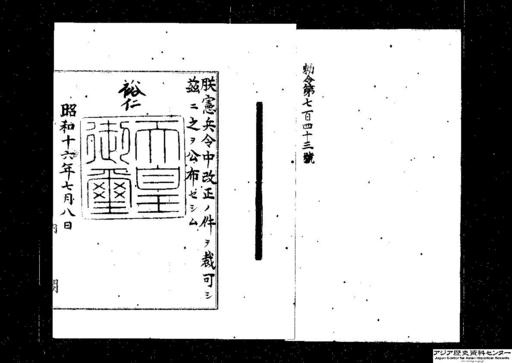 勅令第七百四十三號
朕憲兵令中改正ノ件ヲ裁可シ
茲ニ之ヲ公布セシム
裕仁
天皇
御璽
昭和十六年七月八日
アジア歴史資料センター
Japan Center for Asian Historical Records